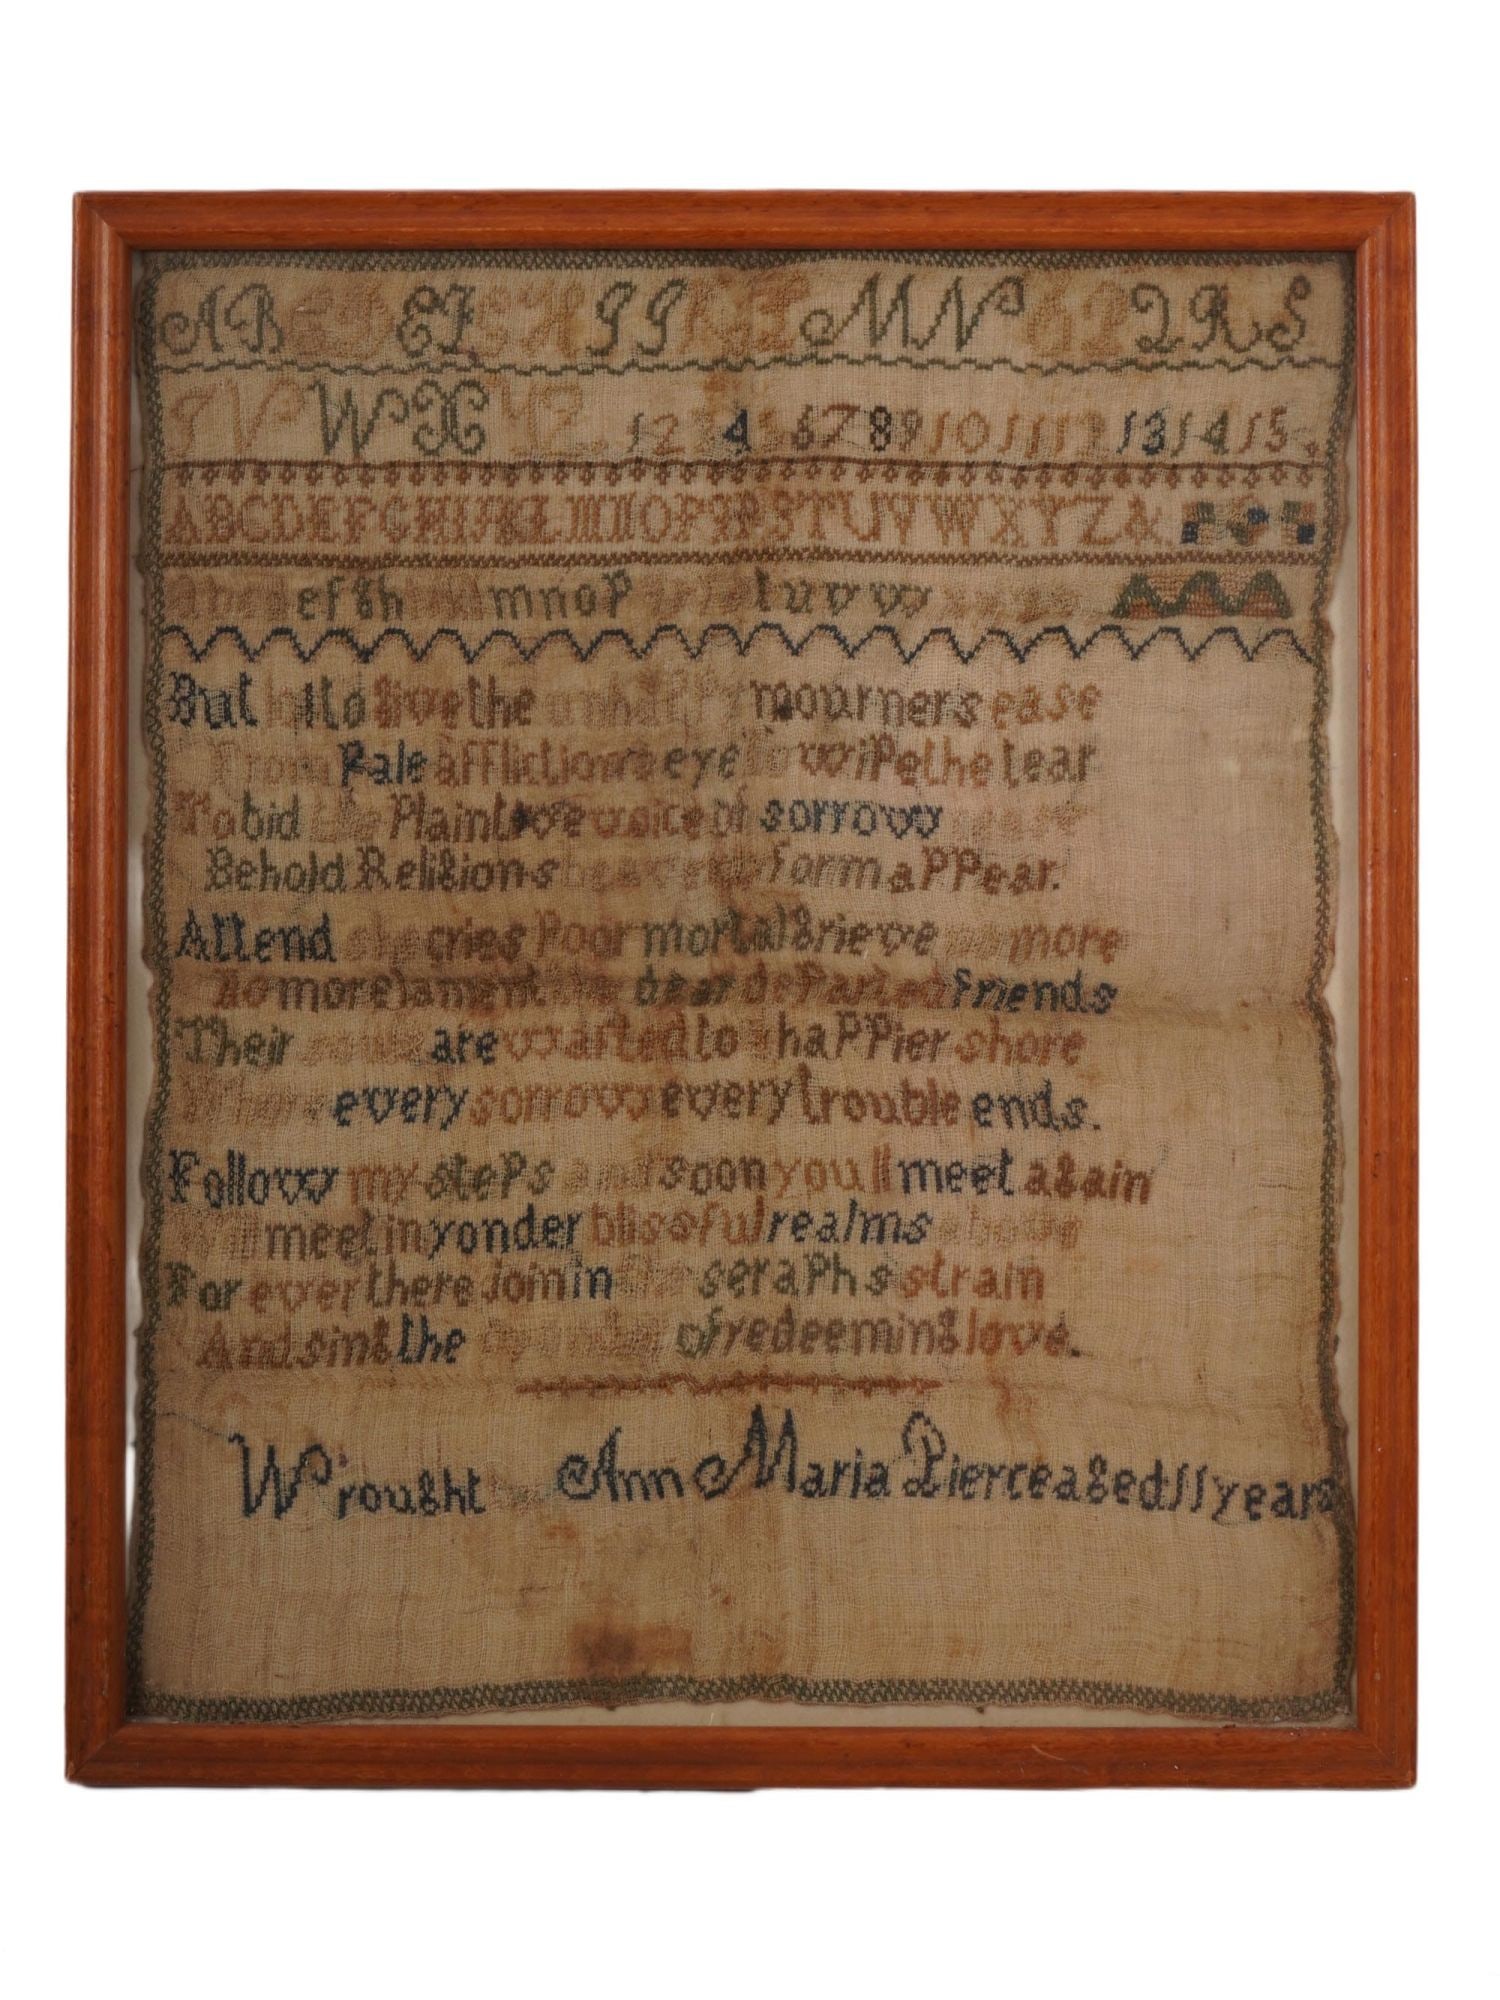 A B C D E F G H I J K L M N O P Q R S
T V W X Y Z 1 2 3 4 5 6 7 8 9 10 11 12 13 14 15
A B C D E F G H I J K L M N O P Q R S T U V W X Y Z &
a b c d e f g h m n o p t u v w
But to give the unhappy mourners ease
From Pale afflictions eye to wipe the tear
To bid the Plaintive voice of sorrow cease
Behold Religions heavenly form appear.
Attend she cries Poor mortal grieve no more
No more lament the dear departed friends
Their souls are wafted to a happier shore
Where every sorrow every trouble ends.
Follow my steps and soon youll meet again
Will meet in yonder blissful realms above
For ever there join in the seraphs strain
And sing the of redeeming love.
Wrought by Ann Maria Pierce aged 11 years